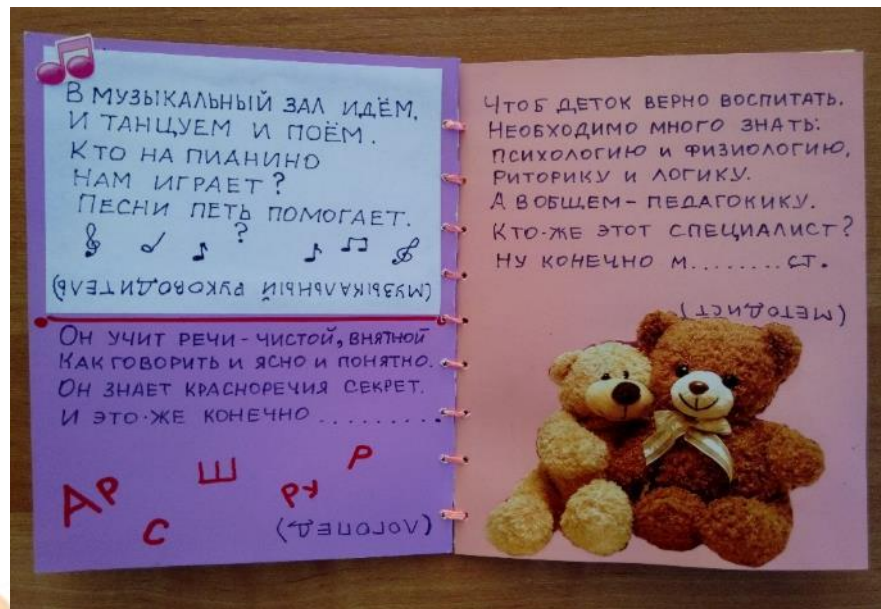 В МУЗЫКАЛЬНЫЙ ЗАЛ ИДЁМ,
И ТАНЦУЕМ И ПОЁМ.
КТО НА ПИАНИНО
НАМ ИГРАЕТ?
ПЕСНИ ПЕТЬ ПОМОГАЕТ.
?
(МУЗЫКАЛЬНЫЙ РУКОВОДИТЕЛЬ)
ОН УЧИТ РЕЧИ - ЧИСТОЙ, ВНЯТНОЙ
КАК ГОВОРИТЬ И ЯСНО И ПОНЯТНО.
ОН ЗНАЕТ КРАСНОРЕЧИЯ СЕКРЕТ.
И ЭТО-ЖЕ КОНЕЧНО .........
АР С Ш РУ Р
(ЛОГОПЕД)
ЧТОБ ДЕТОК ВЕРНО ВОСПИТАТЬ.
НЕОБХОДИМО МНОГО ЗНАТЬ:
ПСИХОЛОГИЮ И ФИЗИОЛОГИЮ,
РИТОРИКУ И ЛОГИКУ.
А ВОБЩЕМ - ПЕДАГОКИКУ.
КТО-ЖЕ ЭТОТ СПЕЦИАЛИСТ?
НУ КОНЕЧНО М........СТ.
(МЕТОДИСТ)